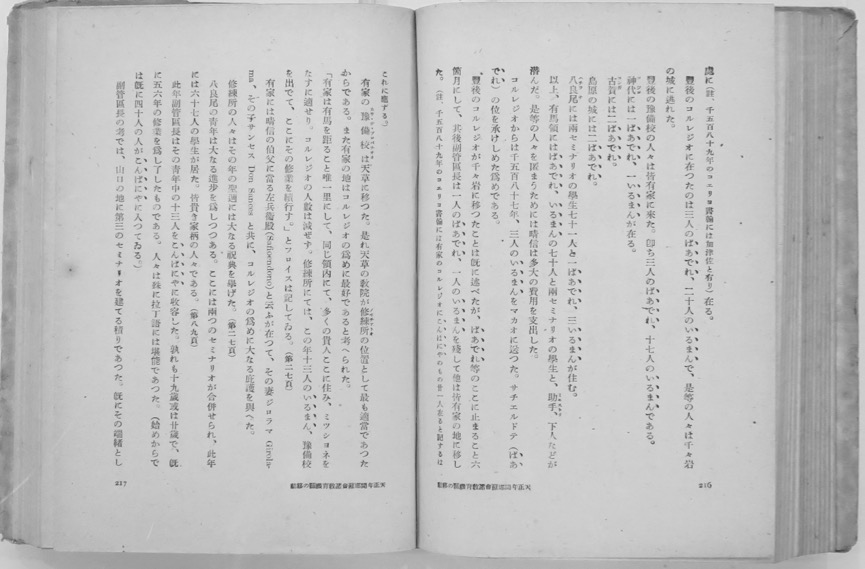 處に(註、千五百八十九年のコエリヨ書翰には加津佐と有り)在る。
豐後のコルレジオに在つたのは三人のばあでれ、二十人のいるまんで、是等の人々は千々岩
の城に逃れた。
豐後の豫備校の人々は皆有家に來た。卽ち三人のばあでれ、十七人のいるまんである。
神代には一ばあでれ、一いるまんが在る。
古賀には二ばあでれ。
島原の城には二ばあでれ。
八良尾には兩セミナリオの學生七十一人と一ばあでれ、三いるまんが住む。
以上、有馬領にはばあでれ、いるまんの七十人と兩セミナリオの學生と、助手、下人などが
潜んだ。是等の人々を匿まうためには晴信は多大の費用を支出した。
コルレジオからは千五百八十七年、三人のいるまんをマカオに送つた。サチエルドテ(ばあ
でれ)の位を承けしめた爲めである。
豐後のコルレジオが千々岩に移つたことは旣に述べたが、ばあでれ等のここに止まること六
箇月にして、其後副管區長は一人のばあでれ、一人のいるまんを殘して他は皆有家の地に移し
た。(註、千五百八十九年のコエリヨ書翰には有家のコルレジオにこんぱにやのもの廿一人在ると記するは
216
天正年間耶蘇會諸敎育機關の移動
これに應ずる。)
有家の豫備校は天草に移つた。是れ天草の敎院が修練所の位置として最も適當であつた
からである。また有家の地はコルレジオの爲めに最好であると考へられた。
「有家は有馬を距ること唯一里にして、同じ領內にて、多くの貴人ここに住み、ミツシヨネを
なすに適せり。コルレジオの人數は減ぜす。修練所にては、この年十三人のいるまん、豫備校
を出でて、ここにその修業を續行す。」とフロイスは記してゐる。(第二七頁)
有家には晴信の伯父に當る左兵衞殿(Safioyedono)と云ふが在つて、その妻ジロラマ Girola-
ma, その子サンセス Don Sances と共に、コルレジオの爲めに大なる庇護を與へた。
修練所の人々はその年の聖週には大なる祝典を擧げた。(第二七頁)
八良尾の靑年は大なる進步を爲しつつある。ここには兩つのセミナリオが合併せられ、此年
には六十七人の學生が居た。皆貴き家柄の人々である。(第八九頁)
此年副管區長はその靑年中の十三人をこんぱにやに收容した。孰れも十九歲或は廿歲で、旣
に五六年の修業を爲し了したものである。人々は殊に拉丁語には堪能であつた。(始めからで
は旣に四十人の人がこんぱにやに入つてゐる。)
副管區長の考では、山口の地に第三のセミナリオを建てる積りであつた。旣にその端緖とし
217
天正年間耶蘇會諸敎育機關の移動